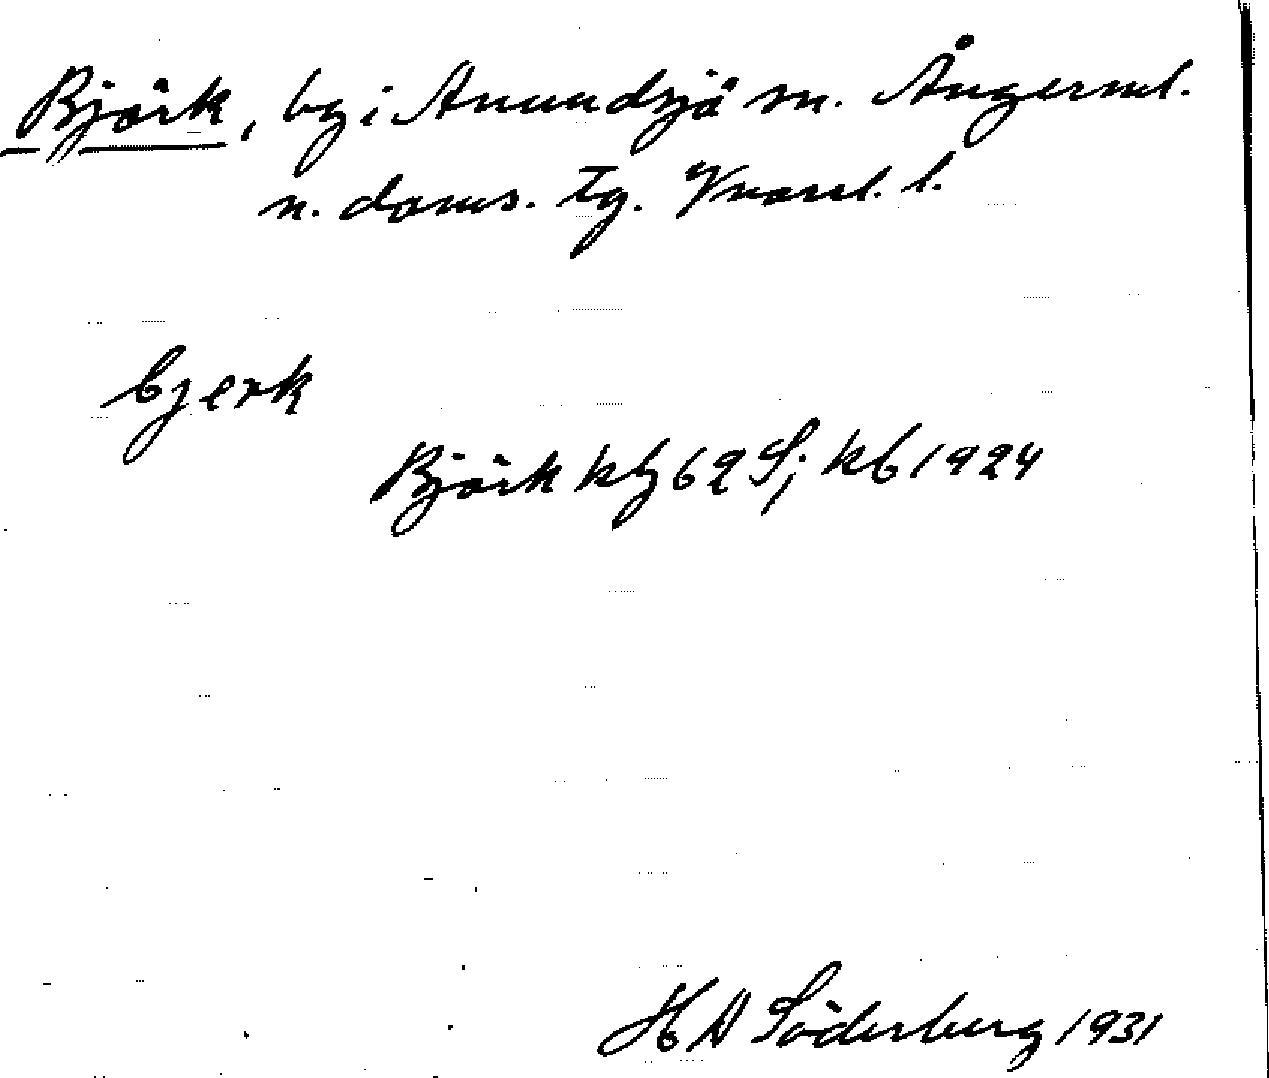 Björk, by i Anundsjö sn. Ångerml.
n. doms. tg. Vnorrl. l.
bjerk
Björk kbl 62 S; kb 1924
H D Söderberg 1931